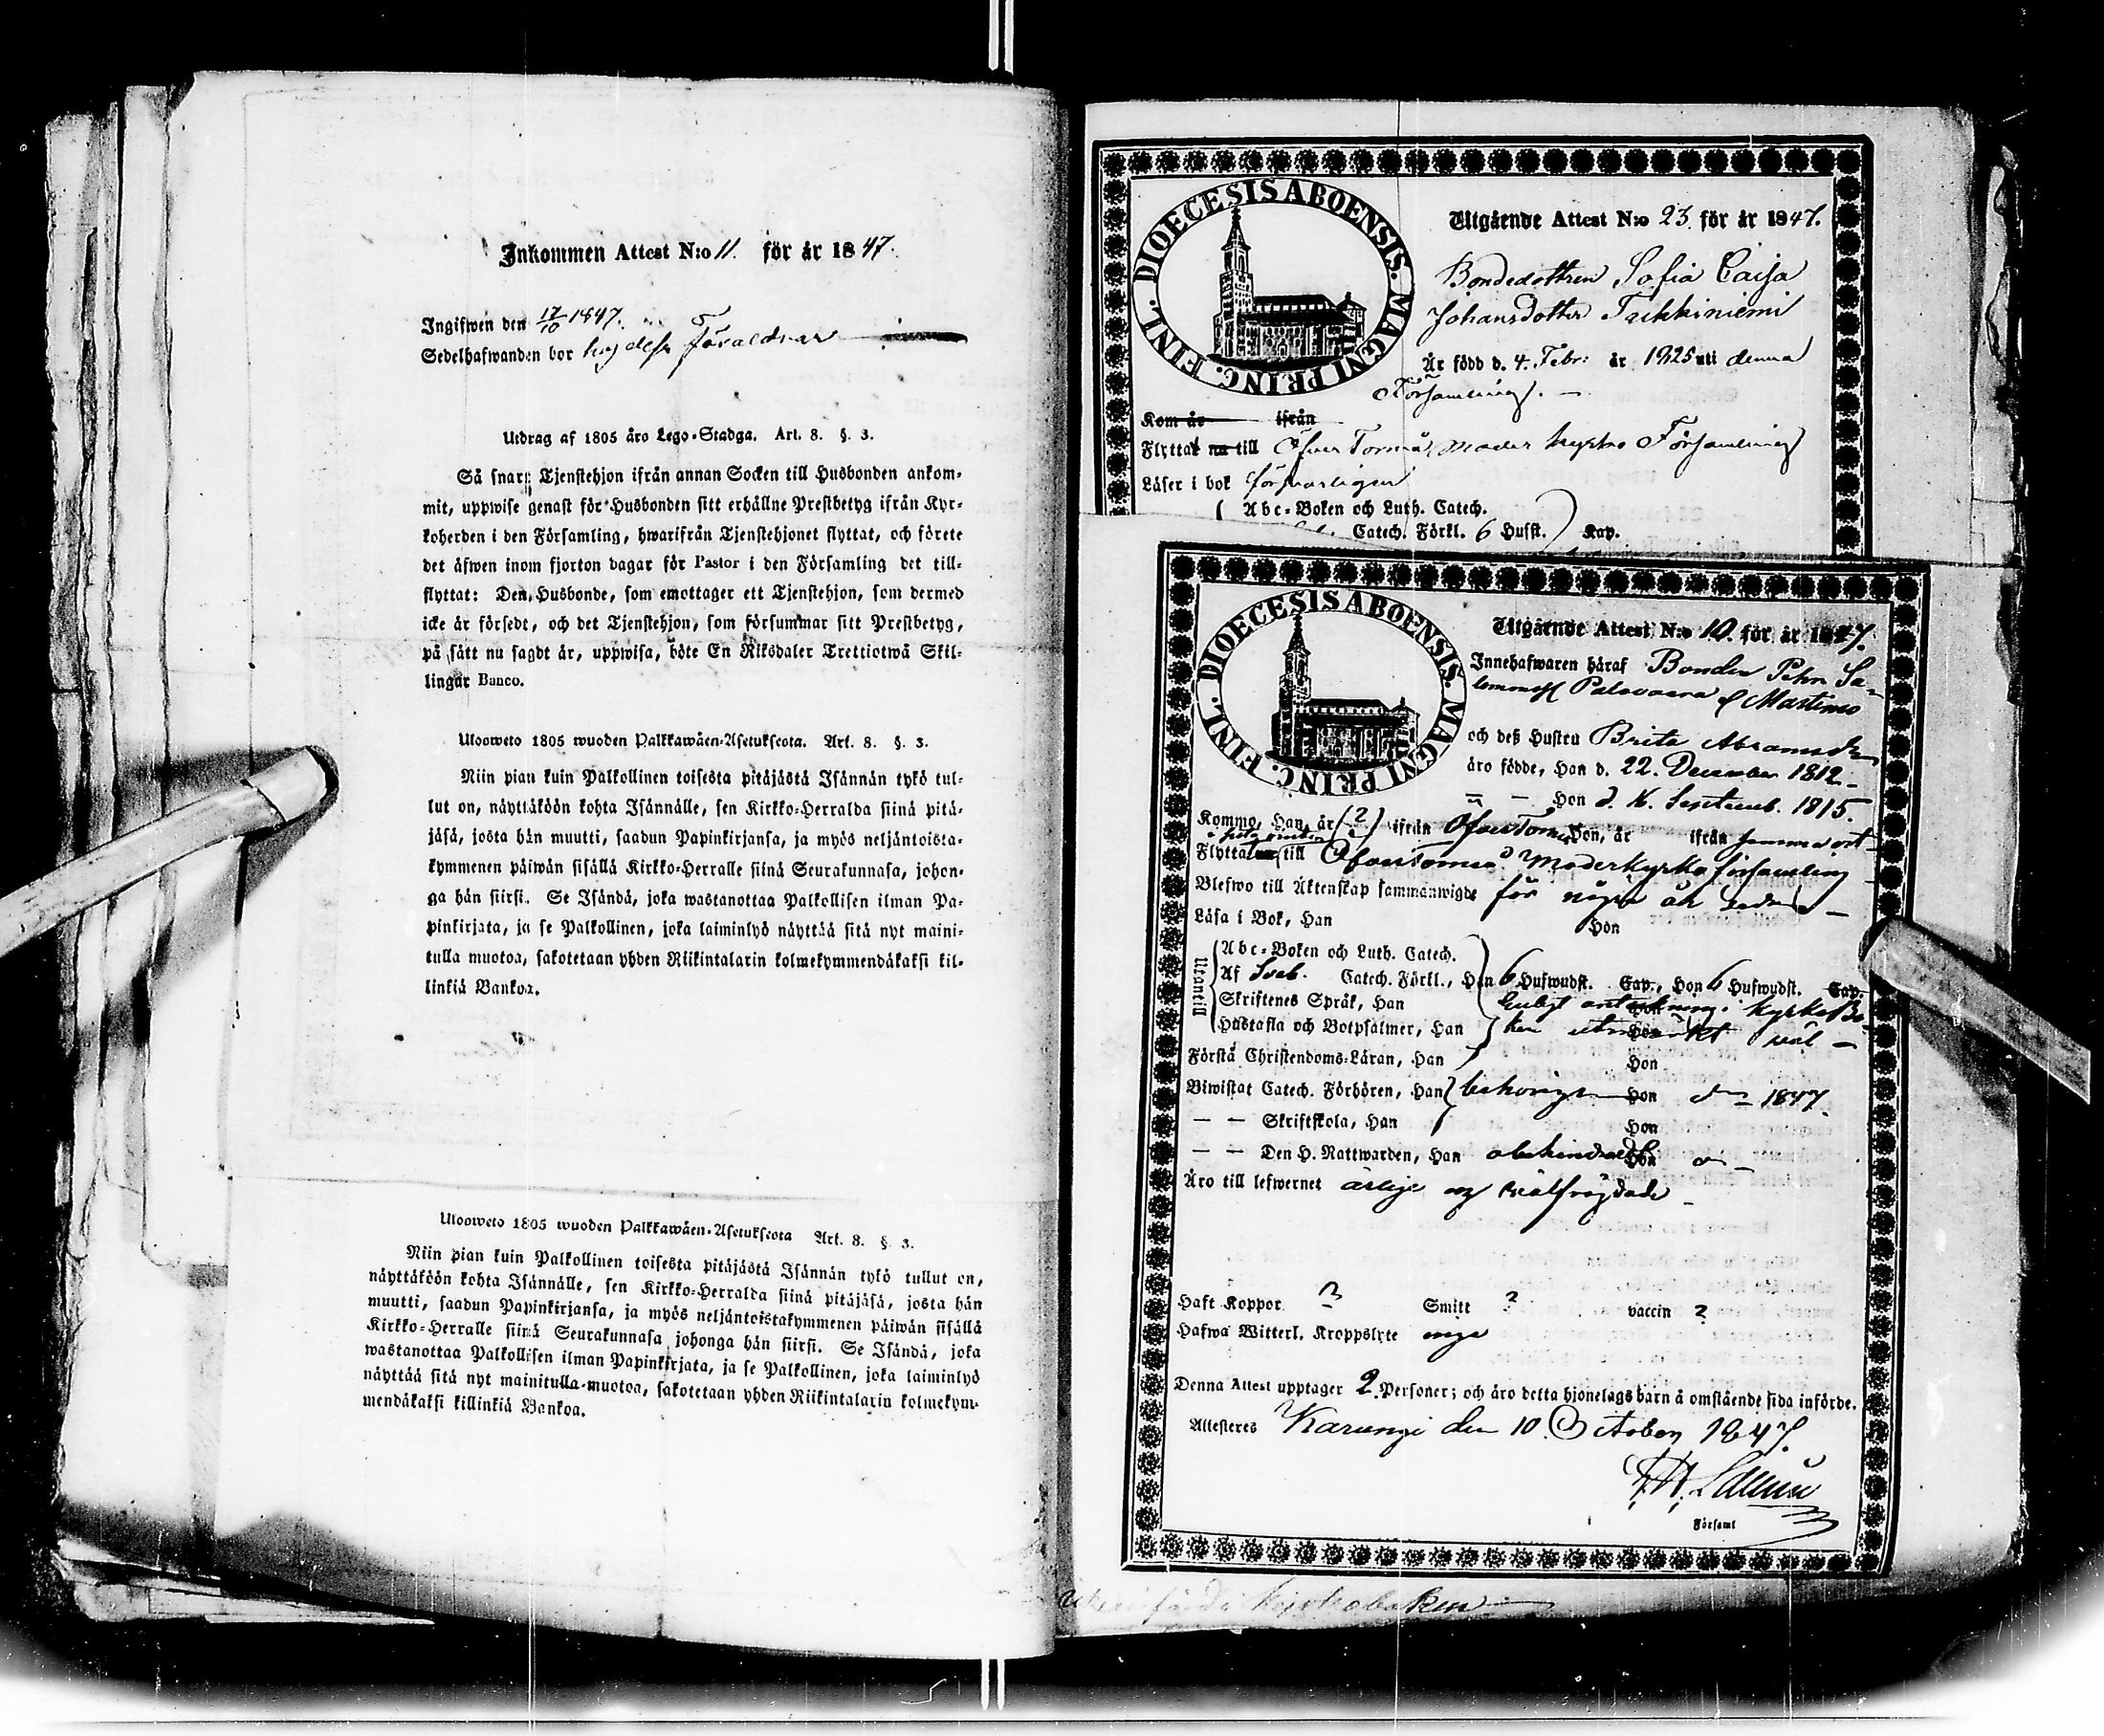 Inkommen Attest N:o 11. för år 1847.
Ingifwen den 17/10 1847.
Sedelhafwanden bor hos dess Föräldrar
Utdrag af 1805 års Lego-Stadga. Art. 8. §. 3.
Så snart Tjenstehjon ifrån annan Socken till Husbonden ankom-
mit, uppwise genast för Husbonden sitt erhållne Prestbetyg ifrån Kyr-
koherden i den Församling, hwarifrån Tjenstehjonet flyttat, och förete
det äfwen inom fjorton dagar för Pastor i den Församling det till-
flyttat: Den Husbonde, som emottager ett Tjenstehjon, som dermed
icke är försedt, och det Tjenstehjon, som försummar sitt Prestbetyg,
på sätt nu sagdt är, uppwisa, böte En Riksdaler Trettiotwå Skil-
lingar Banco.
Ulosweto 1805 wuoden Palkkawäen-Asetuksesta. Art. 8. §. 3.
Niin pian kuin Palkollinen toisesta pitäjästä Isännän tykö tul-
lut on, näyttäköön kohta Isännälle, sen Kirkko-Herralda siinä pitä-
jäsä, josta hän muutti, saadun Papinkirjansa, ja myös neljäntoista-
kymmenen päiwän sisällä Kirkko-Herralle siinä Seurakunnasa, johon-
ga hän siirsi. Se Isändä, joka wastanottaa Palkollisen ilman Pa-
pinkirjata, ja se Palkollinen, joka laiminlyö näyttää sitä nyt maini-
tulla muotoa, sakotetaan yhden Riikintalarin kolmekymmendäkaksi kil-
linkiä Bankoa.
Ulosweto 1805 wuoden Palkkawäen-Asetuksesta Art. 8. §. 3.
Niin pian kuin Palkollinen toisesta pitäjästä Isännän tykö tullut on,
näyttäköön kohta Isännälle, sen Kirkko-Herralda siinä pitäjäsä, josta hän
muutti, saadun Papinkirjansa, ja myös neljäntoistakymmenen päiwän sisällä
Kirkko-Herralle siinä Seurakunnasa johonga hän siirsi. Se Isändä, joka
wastanottaa Palkollisen ilman Papinkirjata, ja se Palkollinen, joka laiminlyö
näyttää sitä nyt mainitulla muotoa, sakotetaan yhden Riikintalarin kolmekym-
mendäkaksi killinkiä Bankoa.
DIOECESIS ABOENSIS. MAGNI PRINC. FINL.
Utgående Attest N:o 23. för år 1847.
Bondedottren Sofia Caisa
Johansdotter Taikkiniemi
Är född d. 4. Febr: år 1825 uti denna
Församling.
Kom år ifrån
Flyttat nu till Öfver Torneå Moder kyrko Församling
Läser i bok försvarligen
Abc-Boken och Luth. Catech.
Catech. Förkl. 6 Hufst. Kap.
DIOECESIS ABOENSIS. MAGNI PRINC. FINL.
Utgående Attest N:o 10. för år 1847.
Innehafwaren häraf Bonden Pehr Sa-
lomonss Palovaara f Martimo
och deß Hustru Brita Abramsdr
äro födde, Han d. 22. December 1812
— — Hon d. 16. Septemb. 1815.
Kommo, Han, år (?) ifrån Öfver Torneå Hon, år ifrån samma ort
Flytta till Öfver Torneå Moderkyrko församling
Blefwo till Äktenskap sammanwigde för några år sedan
Läsa i Bok, Han Hon
Utantill
Abc-Boken och Luth. Catech.
Af Sveb. Catech. Förkl., Han 6 Hufwudst. Cap., Hon 6 Hufwudst. Cap.
Skriftenes Språk, Han Hon enligt anteckning i Kyrko Bo-
Hustafla och Botpsalmer, Han Hon ken utmärkt väl
Första Christendoms-Läran, Han Hon
Biwistat Catech. Förhören, Han behörigen Hon do 1847.
— — Skriftskola, Han Hon
— — Den H. Nattwarden, Han obehindradt Hon
Äro till lefwernet ärlige och välfrägdade
Haft Koppor ? Smitt ? vaccin ?
Hafwa Witterl. Kroppslyte inga
Denna Attest upptager 2 Personer; och äro detta hjonelags barn å omstående sida införde.
Attesteres Karungi den 10 October 1847.
Församl
kyrkoboken